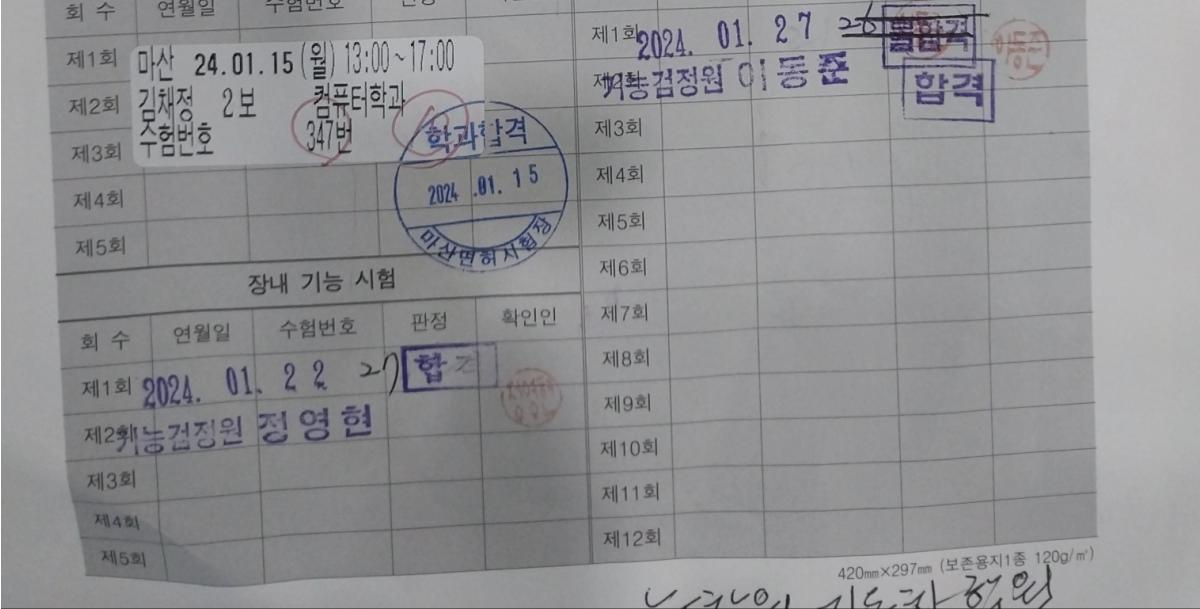 회 수 연월일 수험번호
제1회
마산 24.01.15 (월) 13:00~17:00
제2회
김채정 2보 컴퓨터학과
수험번호 347번
제3회
학과합격
2024 .01. 15
마산면허시험장
제4회
제5회
장내 기능 시험
회 수 연월일 수험번호 판정 확인인
제1회 2024. 01. 22 27 합격
제2회 기능검정원 정영현
제3회
제4회
제5회
제1회 2024. 01. 27 26 불합격
기능검정원 이동준 합격
제3회
제4회
제5회
제6회
제7회
제8회
제9회
제10회
제11회
제12회
420㎜×297㎜ (보존용지1종 120g/㎡)